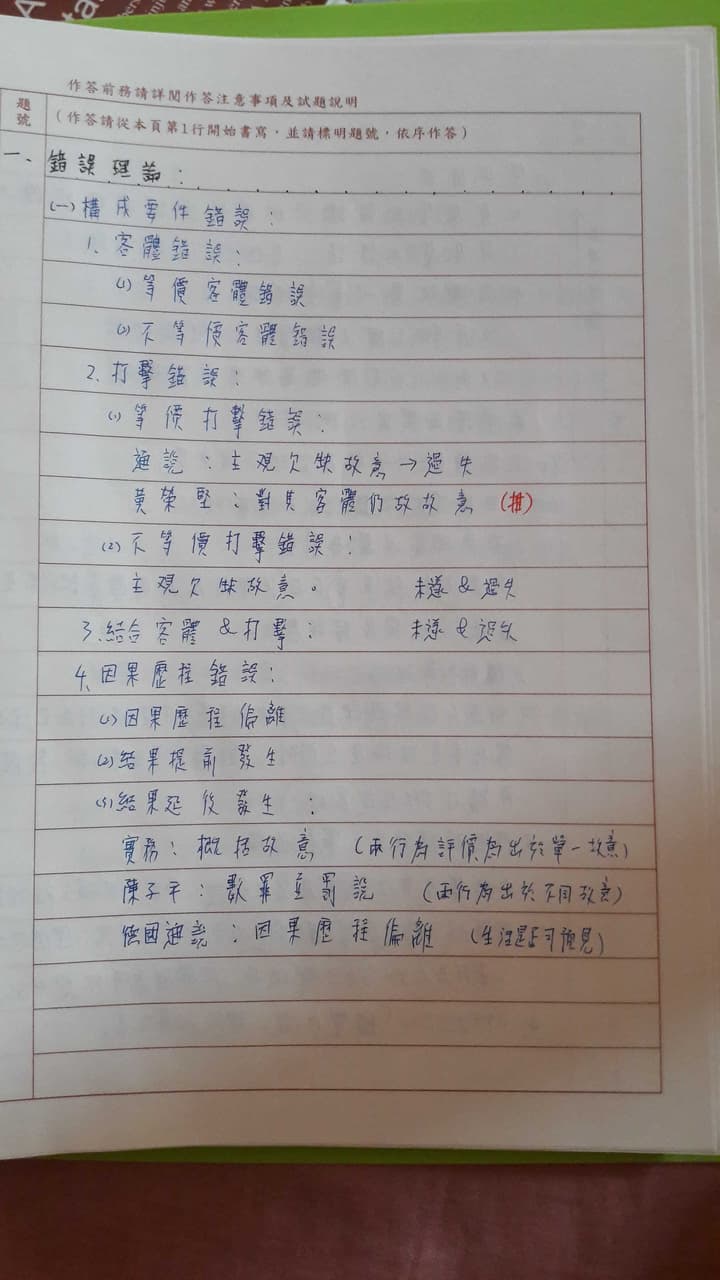 作答前務請詳閱作答注意事項及試題說明
題號
(作答請從本頁第1行開始書寫,並請標明題號,依序作答)
一、錯誤理論:
(一)構成要件錯誤:
1、客體錯誤:
(1)等價客體錯誤
(2)不等價客體錯誤
2、打擊錯誤:
(1)等價打擊錯誤:
通說:主觀欠缺故意→過失
黃榮堅:對其客體仍故故意
(2)不等價打擊錯誤:
主觀欠缺故意。 未遂&過失
3、結合客體&打擊 未遂&過失
4、因果歷程錯誤:
(1)因果歷程偏離
(2)結果提前發生
(3)結果延後發生:
實務:概括故意 (兩行為評價為出於單一故意)
陳子平:數罪並罰說 (兩行為出於不同故意)
德國通說:因果歷程偏離 (生活是否可預見)